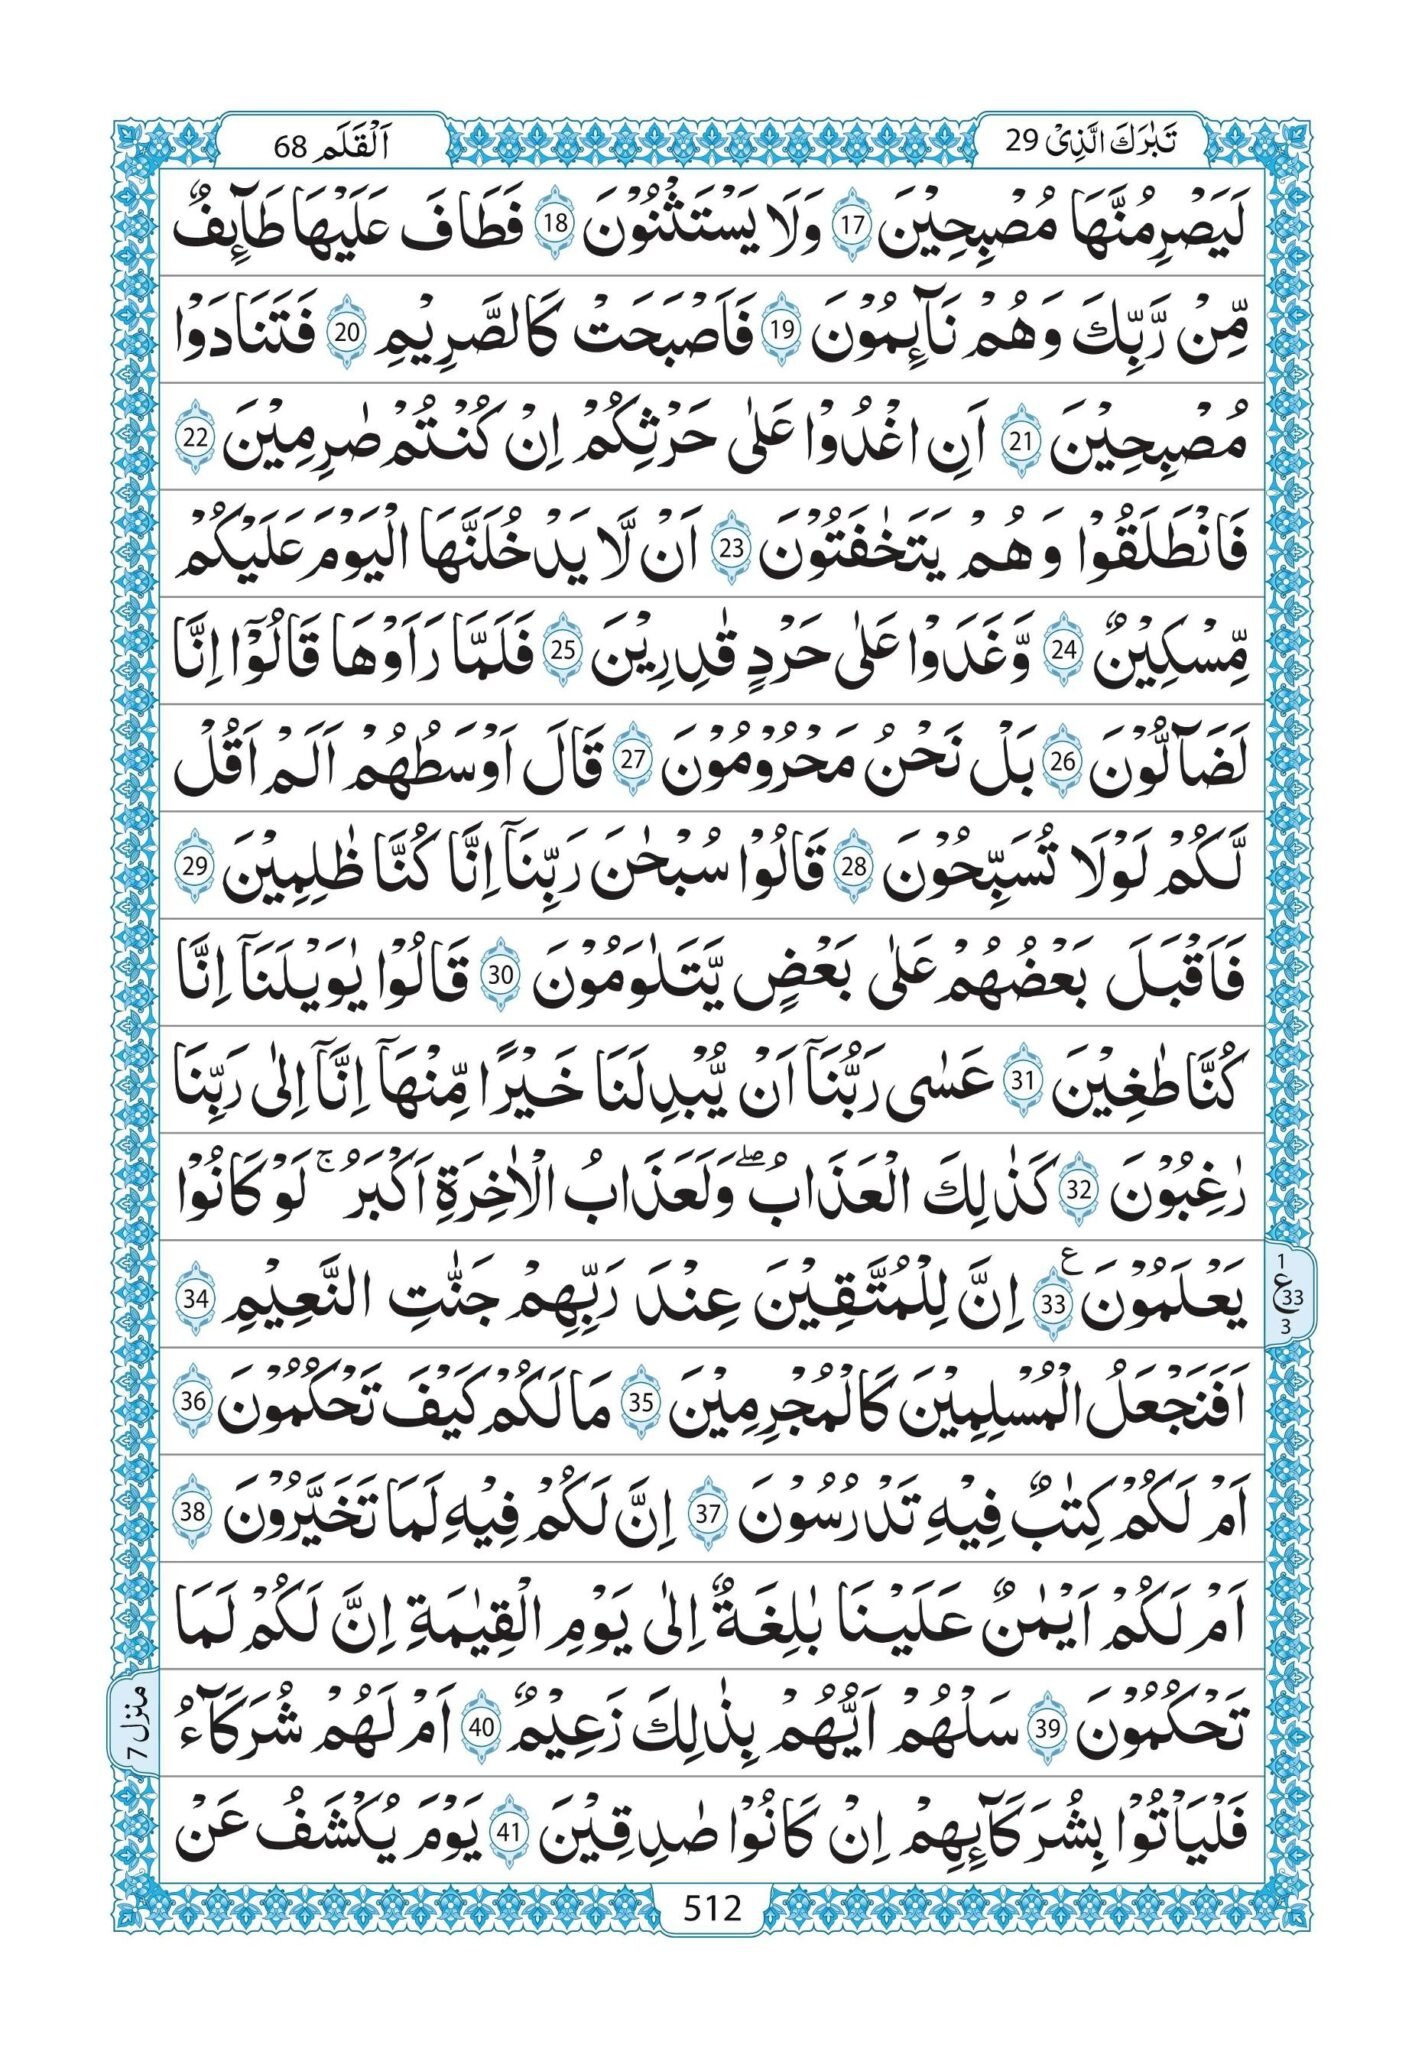 تَبٰرَكَ الَّذِیْ 29
اَلْقَلَم 68
لَیَصْرِمُنَّهَا مُصْبِحِیْنَ 17 وَلَا یَسْتَثْنُوْنَ 18 فَطَافَ عَلَیْهَا طَآىِٕفٌ
مِّنْ رَّبِّكَ وَهُمْ نَآىِٕمُوْنَ 19 فَاَصْبَحَتْ كَالصَّرِیْمِ 20 فَتَنَادَوْا
مُصْبِحِیْنَ 21 اَنِ اغْدُوْا عَلٰى حَرْثِكُمْ اِنْ كُنْتُمْ صٰرِمِیْنَ 22
فَانْطَلَقُوْا وَهُمْ یَتَخَافَتُوْنَ 23 اَنْ لَّا یَدْخُلَنَّهَا الْیَوْمَ عَلَیْكُمْ
مِّسْكِیْنٌ 24 وَّغَدَوْا عَلٰى حَرْدٍ قٰدِرِیْنَ 25 فَلَمَّا رَاَوْهَا قَالُوْۤا اِنَّا
لَضَآلُّوْنَ 26 بَلْ نَحْنُ مَحْرُوْمُوْنَ 27 قَالَ اَوْسَطُهُمْ اَلَمْ اَقُلْ
لَّكُمْ لَوْلَا تُسَبِّحُوْنَ 28 قَالُوْا سُبْحٰنَ رَبِّنَاۤ اِنَّا كُنَّا ظٰلِمِیْنَ 29
فَاَقْبَلَ بَعْضُهُمْ عَلٰى بَعْضٍ یَّتَلَاوَمُوْنَ 30 قَالُوْا یٰوَیْلَنَاۤ اِنَّا
كُنَّا طٰغِیْنَ 31 عَسٰى رَبُّنَاۤ اَنْ یُّبْدِلَنَا خَیْرًا مِّنْهَاۤ اِنَّاۤ اِلٰى رَبِّنَا
رٰغِبُوْنَ 32 كَذٰلِكَ الْعَذَابُ ؕ وَلَعَذَابُ الْاٰخِرَةِ اَكْبَرُ ۚ لَوْ كَانُوْا
یَعْلَمُوْنَ 33 ع اِنَّ لِلْمُتَّقِیْنَ عِنْدَ رَبِّهِمْ جَنّٰتِ النَّعِیْمِ 34
1
ع 33
3
اَفَنَجْعَلُ الْمُسْلِمِیْنَ كَالْمُجْرِمِیْنَ 35 مَا لَكُمْ كَیْفَ تَحْكُمُوْنَ 36
اَمْ لَكُمْ كِتٰبٌ فِیْهِ تَدْرُسُوْنَ 37 اِنَّ لَكُمْ فِیْهِ لَمَا تَخَیَّرُوْنَ 38
اَمْ لَكُمْ اَیْمٰنٌ عَلَیْنَا بٰلِغَةٌ اِلٰى یَوْمِ الْقِیٰمَةِ اِنَّ لَكُمْ لَمَا
تَحْكُمُوْنَ 39 سَلْهُمْ اَیُّهُمْ بِذٰلِكَ زَعِیْمٌ 40 اَمْ لَهُمْ شُرَكَآءُ
منزل 7
فَلْیَاْتُوْا بِشُرَكَآىِٕهِمْ اِنْ كَانُوْا صٰدِقِیْنَ 41 یَوْمَ یُكْشَفُ عَنْ
512